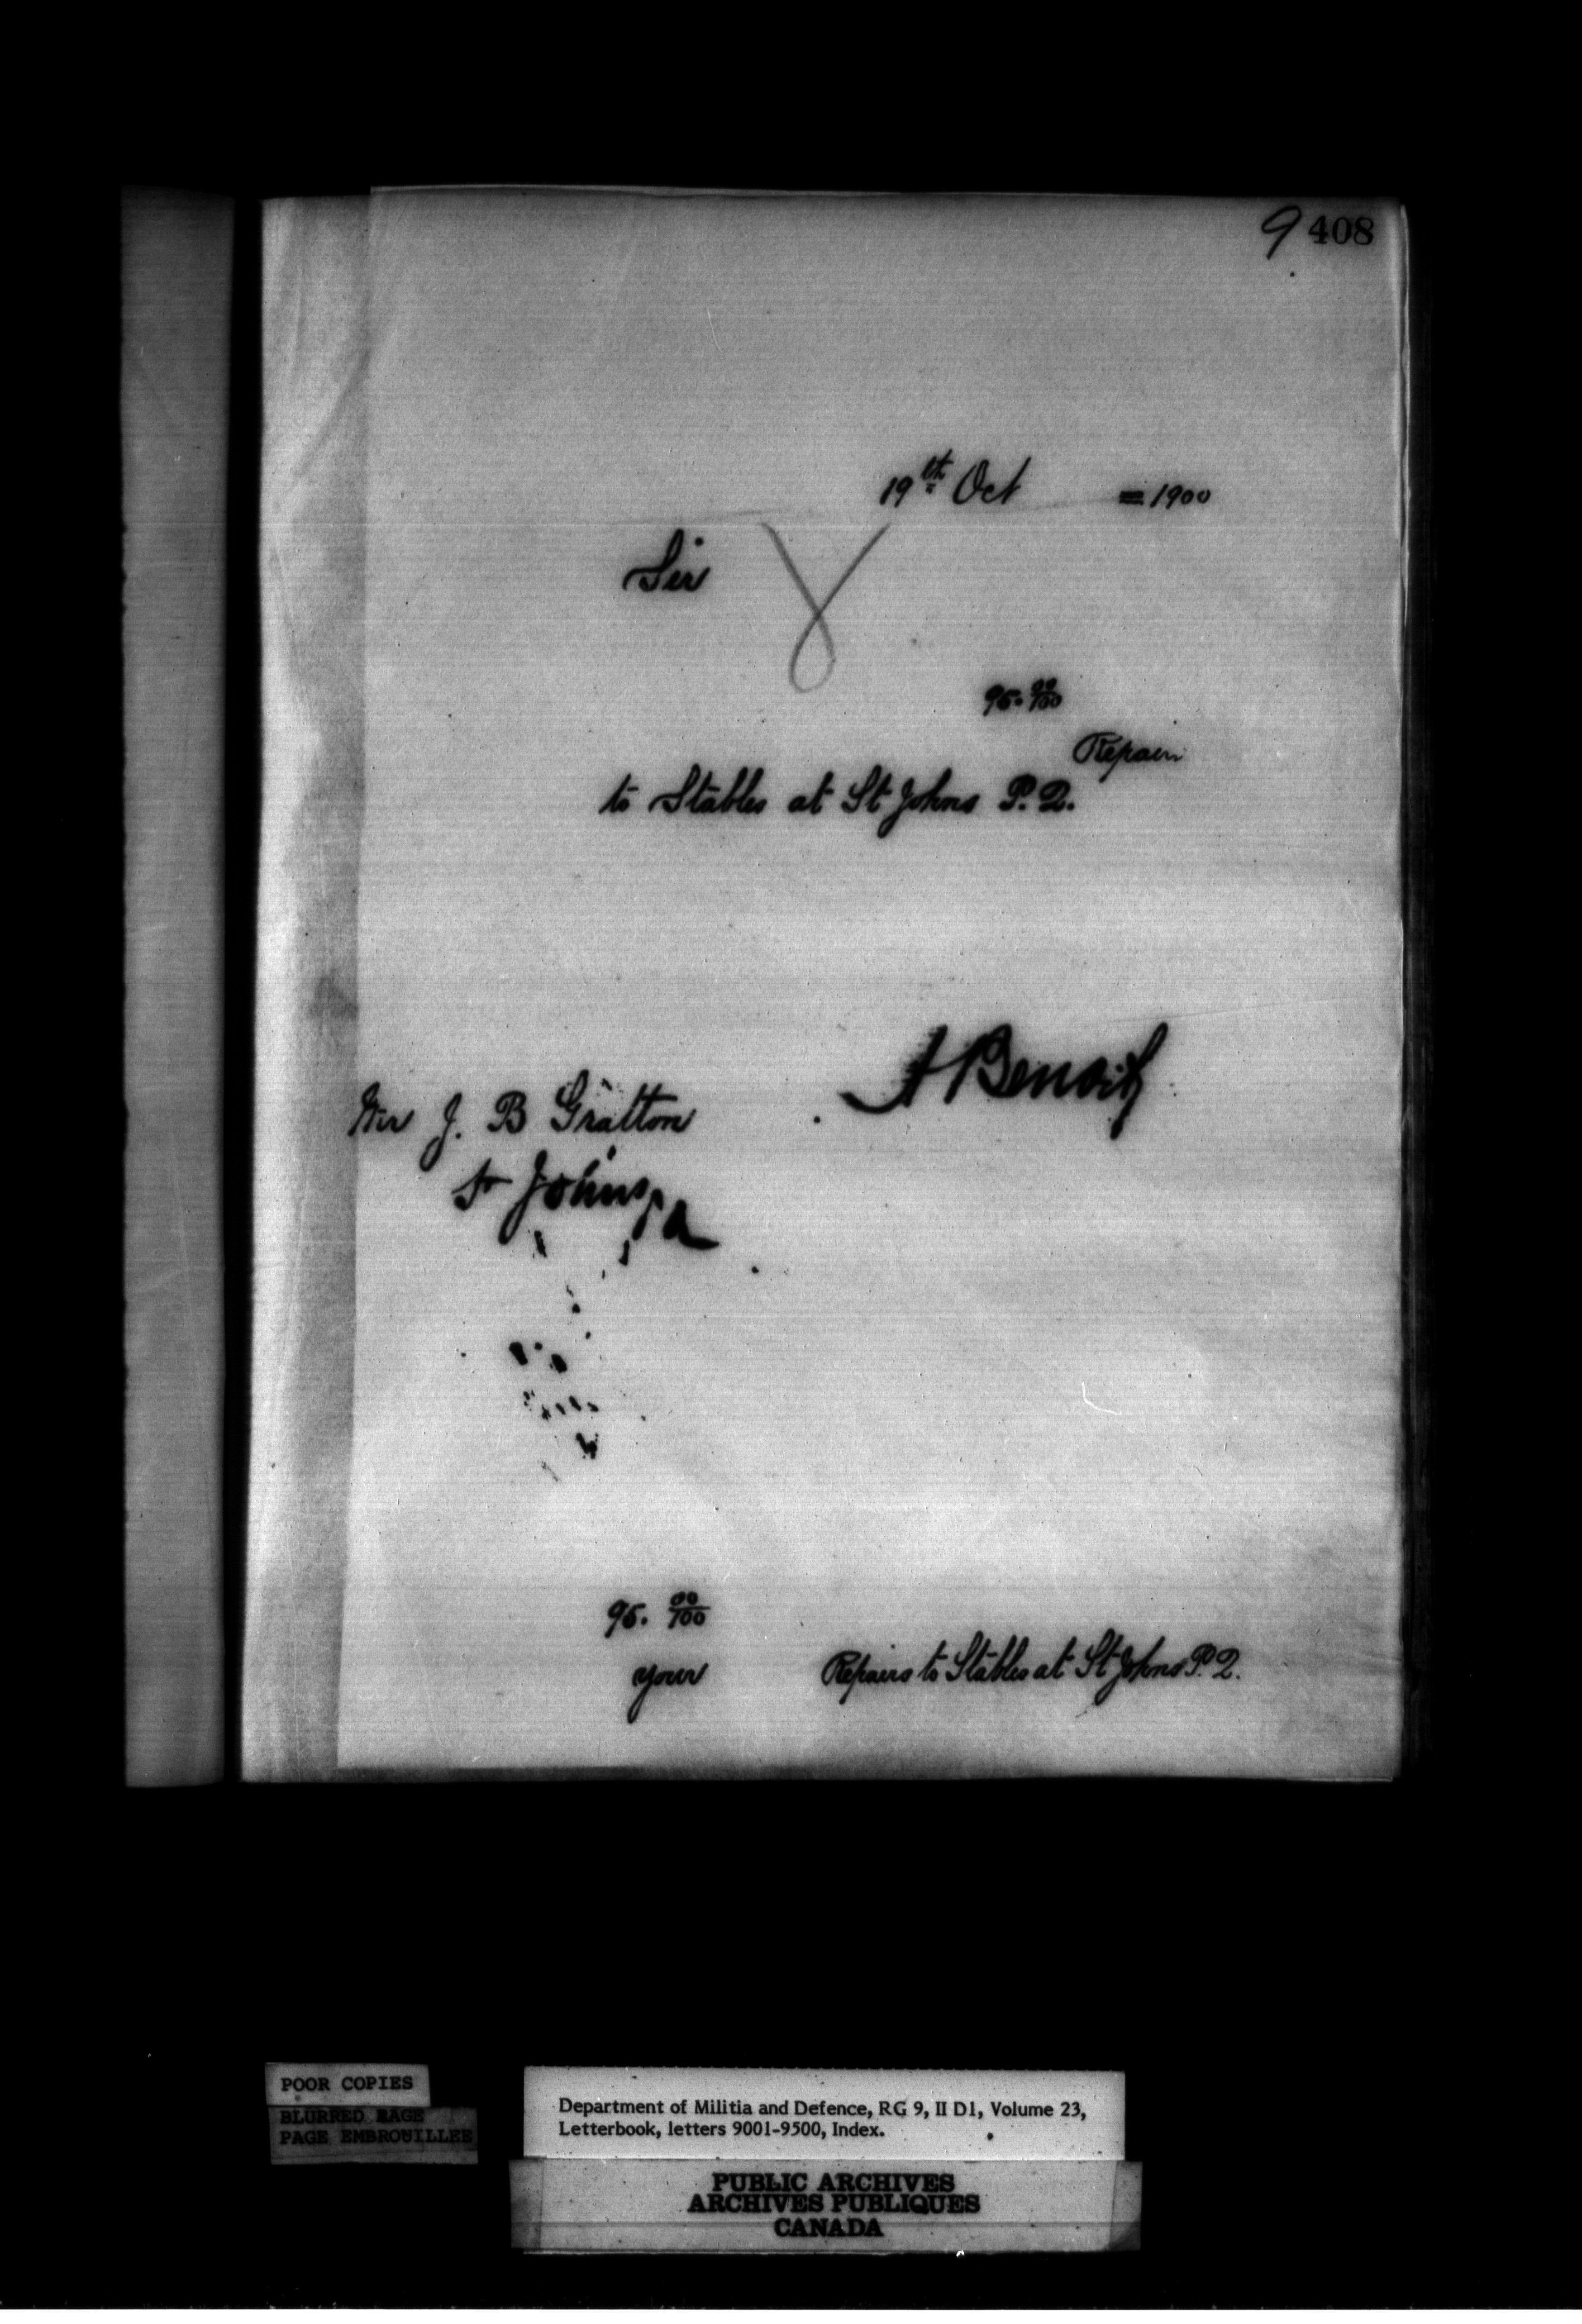 9408
19th Oct = 1900
Sir
95. 00/100
Repairs
to Stables at St Johns P. Q.
A Benoit
Mr J. B Gratton
St Johns P Q
95. 00/100
your Repairs to Stables at St Johns P. Q.
POOR COPIES
BLURRED PAGE
PAGE EMBROUILLEE
Department of Militia and Defence, RG 9, II D1, Volume 23,
Letterbook, letters 9001-9500, Index.
PUBLIC ARCHIVES
ARCHIVES PUBLIQUES
CANADA